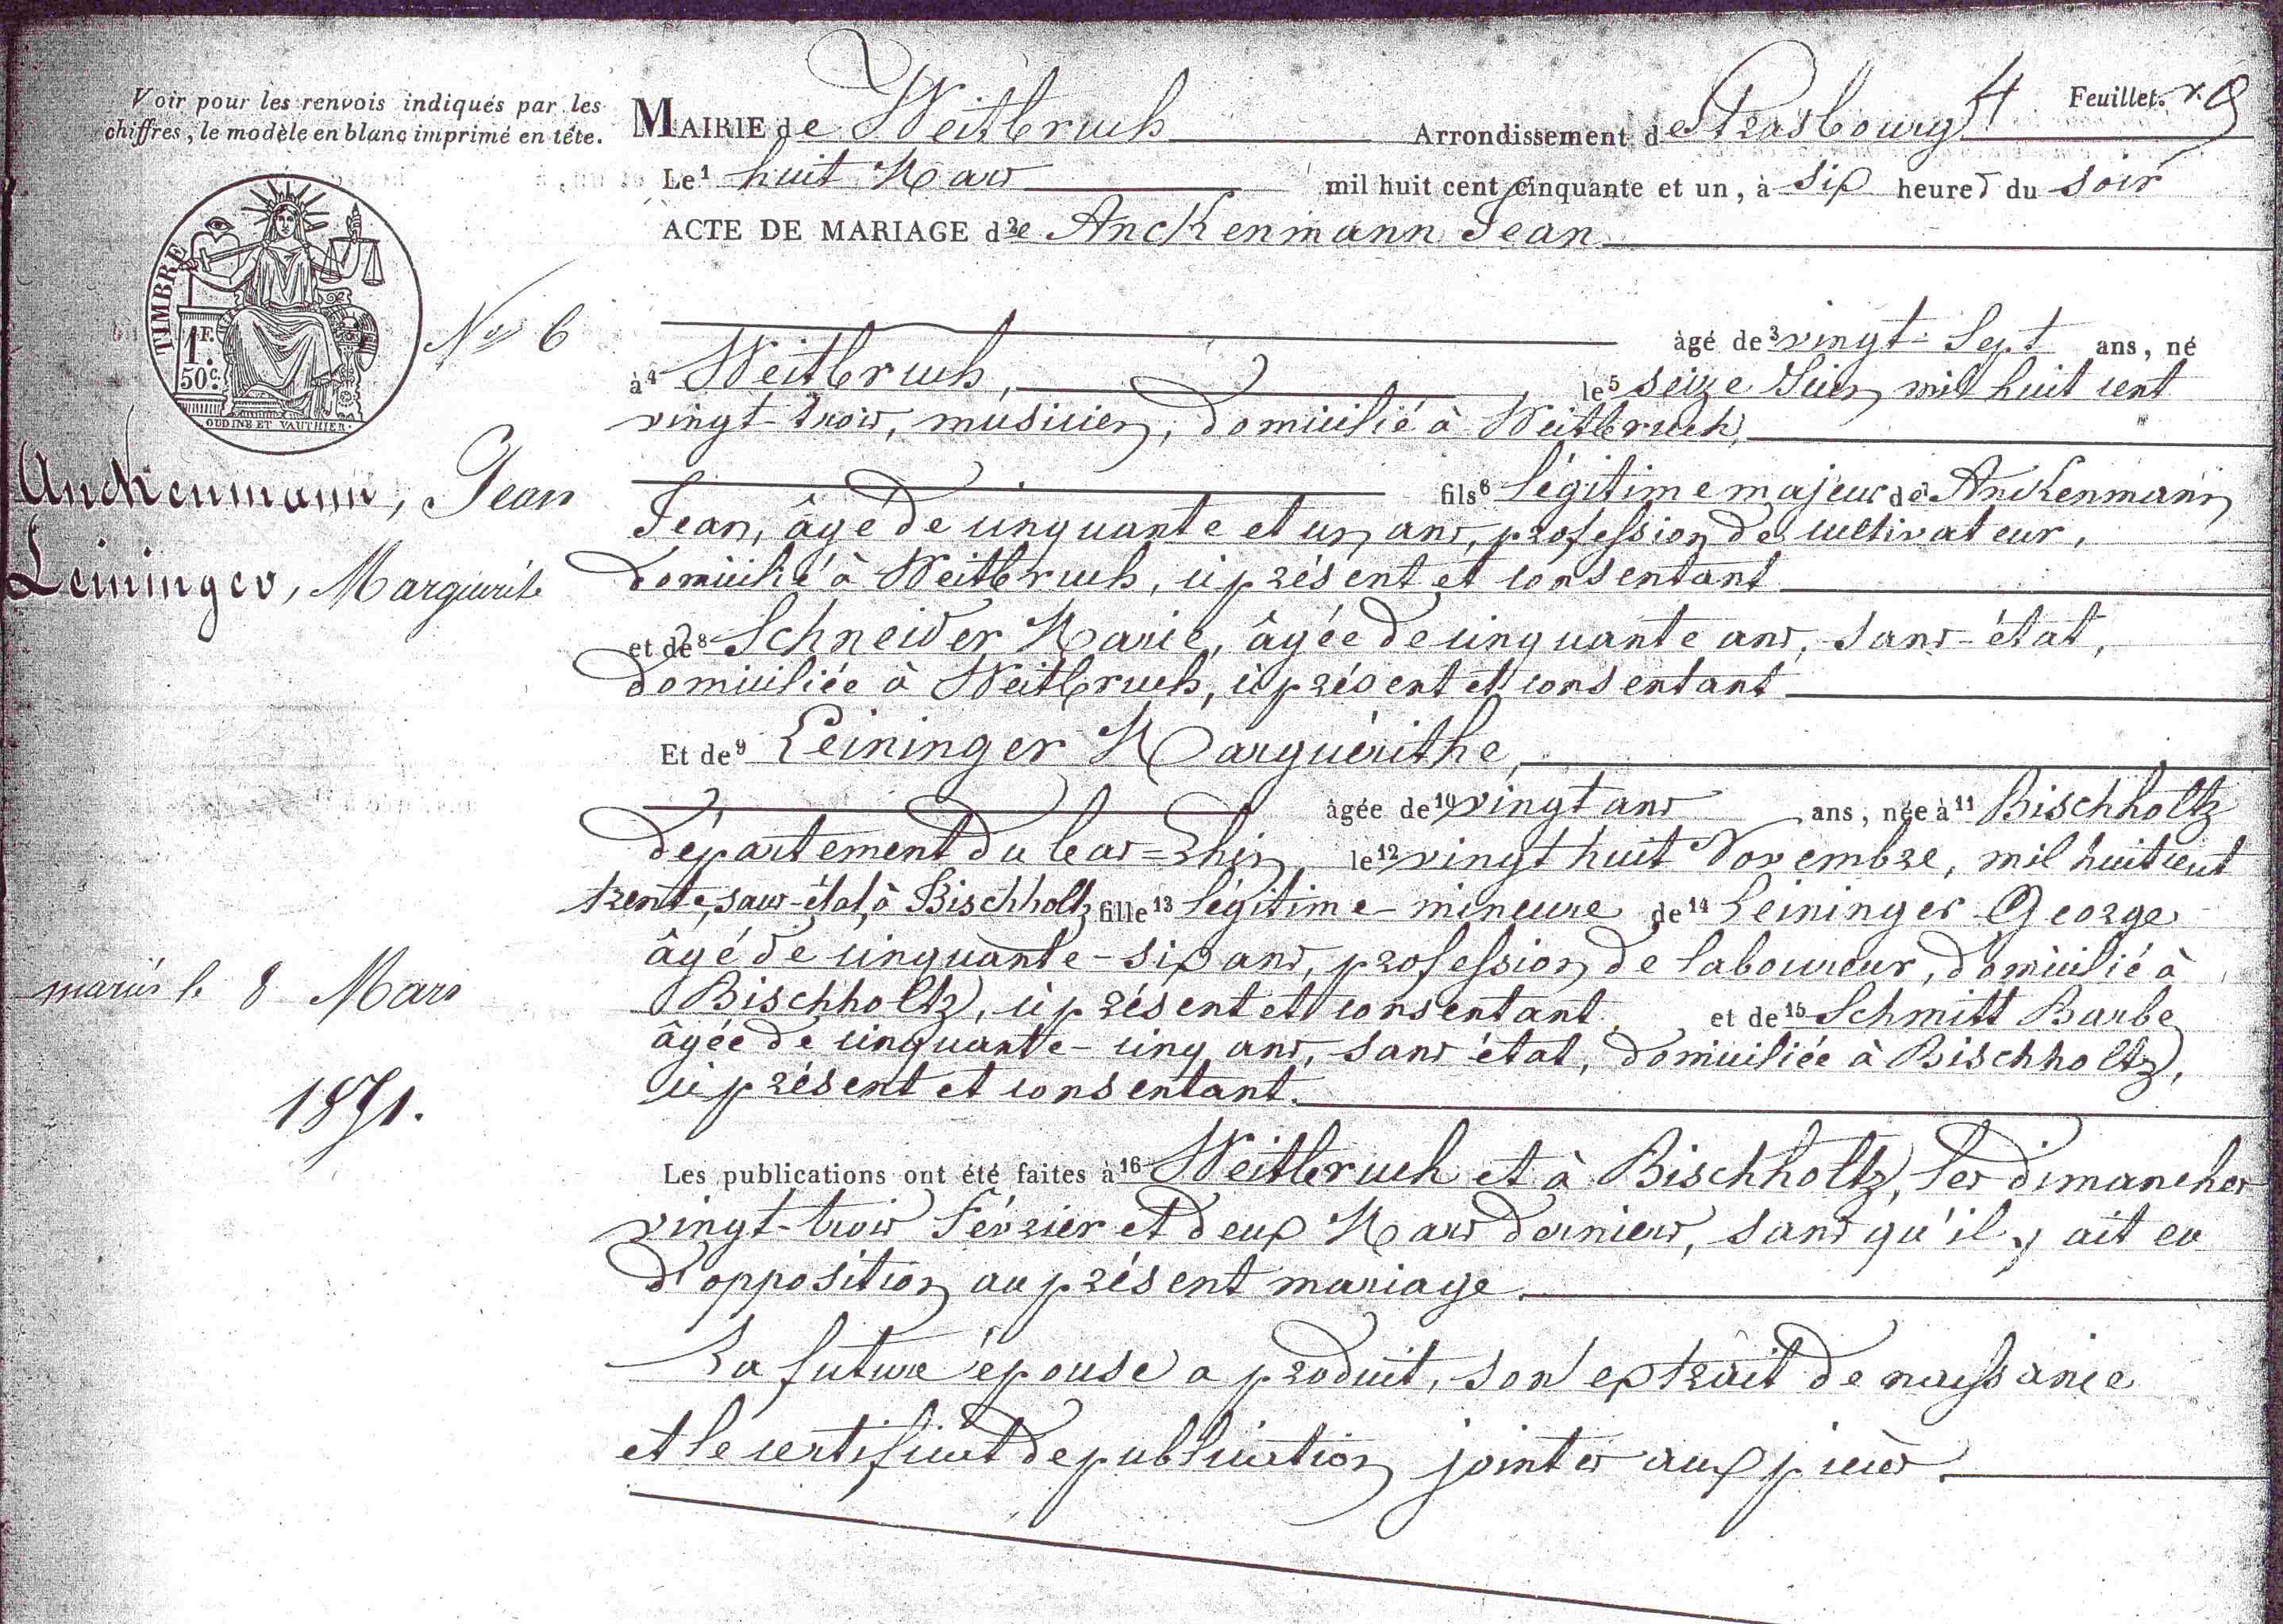 Voir pour les renvois indiqués par les
chiffres, le modèle en blanc imprimé en tête.
MAIRIE de Weitbruch Arrondissement de Strasbourg 4 Feuillet.
Le 1 huit Mars mil huit cent cinquante et un, à six heures du soir
ACTE DE MARIAGE d 2 e Anckenmann Jean
TIMBRE
1 F.
50 c.
OUDINE ET VAUTHIER.
No 6
âgé de 3 vingt-Sept ans, né
à 4 Weitbruch, le 5 seize Juin mil huit cent
vingt-trois, musicien, domicilié à Weitbruch,
Anckenmann, Jean
Leininger, Marguérite
fils 6 légitime majeur de 7 Anckenmann
Jean, âgé de cinquante et un ans, profession de cultivateur,
domicilié à Weitbruch, ci présent et consentant
et de 8 Schneider Marie, âgée de cinquante ans, sans-état,
domiciliée à Weitbruch, ci présent et consentant
Et de 9 Leininger Marguérithe,
âgée de 10 vingt ans ans, née à 11 Bischholtz
département du bas-Rhin, le 12 vingt huit Novembre, mil huit cent
trente, sans-état, à Bischholtz, fille 13 légitime-mineure de 14 Leininger George
âgé de cinquante-six ans, profession de laboureur, domicilié à
Bischholtz, ci présent et consentant, et de 15 Schmitt Barbe
âgée de cinquante-cinq ans, sans état, domiciliée à Bischholtz,
ci présent et consentant.
mariés le 8 Mars
1851.
Les publications ont été faites à 16 Weitbruch et à Bischholtz, les dimanches
vingt-trois Février et deux Mars derniers, sans qu'il y ait eu
d'opposition au présent mariage.
La future épouse a produit, son extrait de naissance
et le certificat de publication jointes aux pièces.